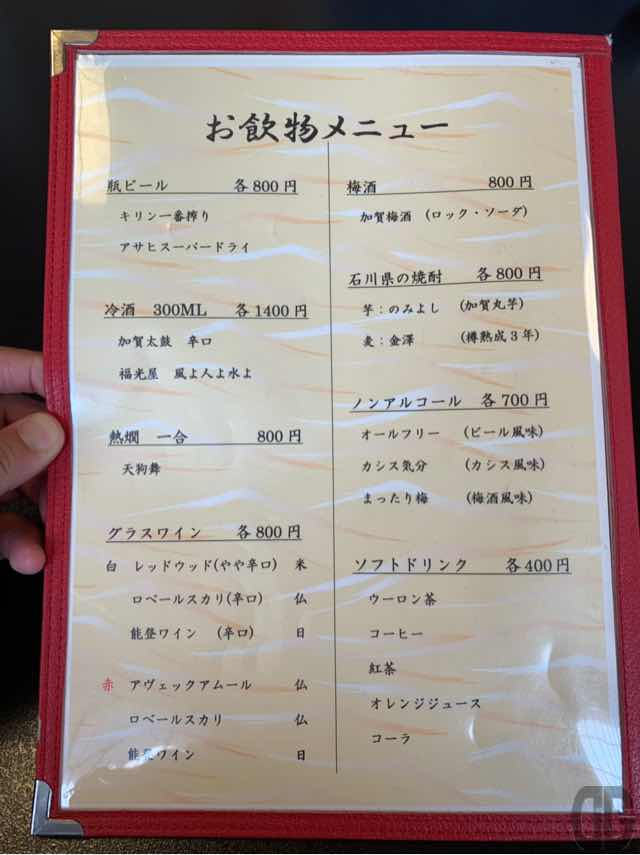 お飲物メニュー
瓶ビール 各800円
キリン一番搾り
アサヒスーパードライ
冷酒 300ML 各1400円
加賀太鼓 辛口
福光屋 風よ人よ水よ
熱燗 一合 800円
天狗舞
グラスワイン 各800円
白 レッドウッド(やや辛口) 米
ロベールスカリ(辛口) 仏
能登ワイン (辛口) 日
赤 アヴェックアムール 仏
ロベールスカリ 仏
能登ワイン 日
梅酒 800円
加賀梅酒 (ロック・ソーダ)
石川県の焼酎 各800円
芋：のみよし (加賀丸芋)
麦：金澤 (樽熟成3年)
ノンアルコール 各700円
オールフリー (ビール風味)
カシス気分 (カシス風味)
まったり梅 (梅酒風味)
ソフトドリンク 各400円
ウーロン茶
コーヒー
紅茶
オレンジジュース
コーラ